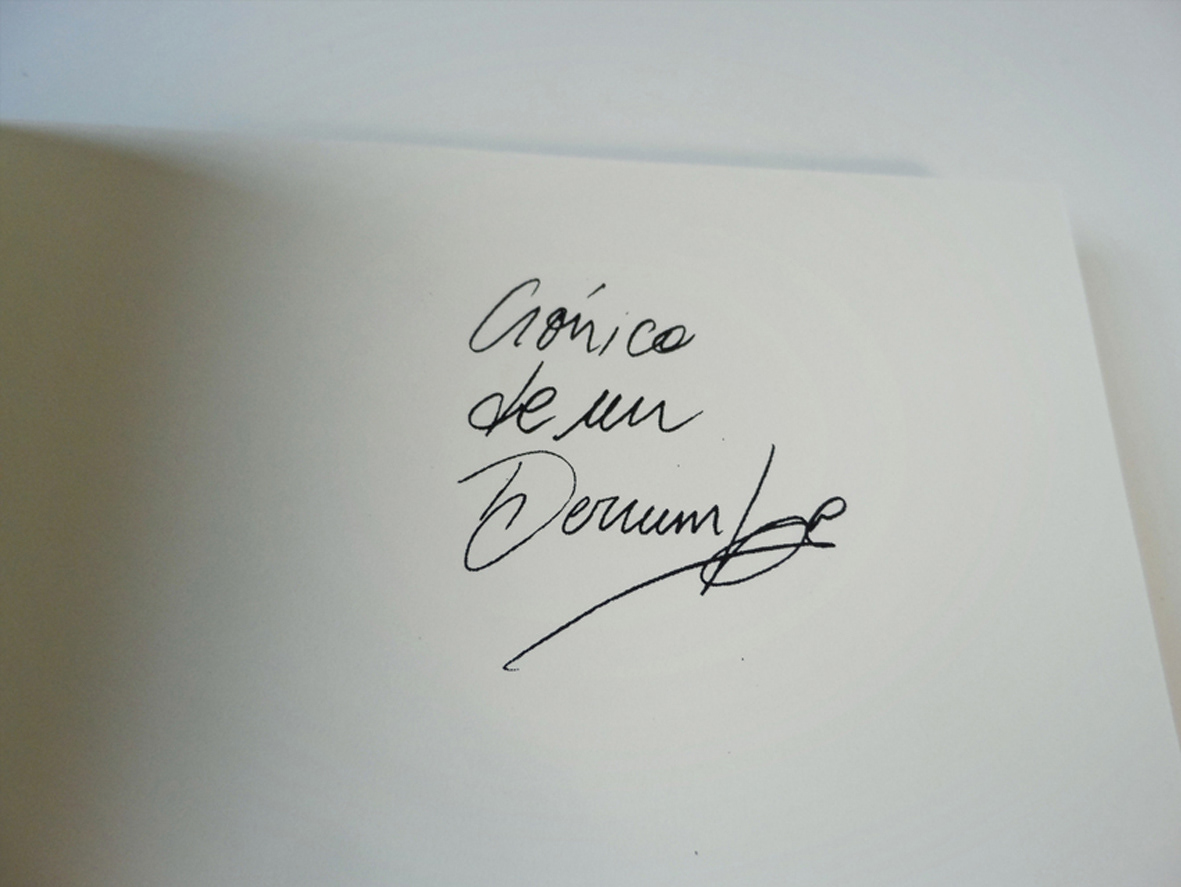 Crónica
de un
Derrumbe